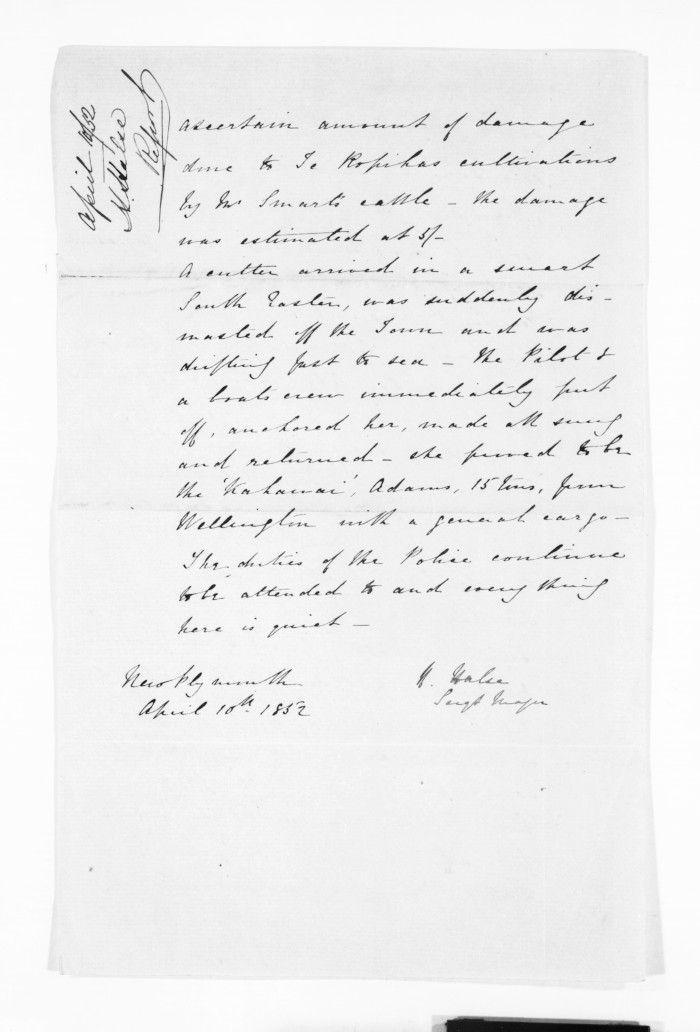 April 10/52
H. Halse
Report
ascertain amount of damage
done to Te Kopihas cultivations
by Mr Smart's cattle - the damage
was estimated at 5/-
A cutter arrived in a smart
South Easter, was suddenly dis-
masted off the Town and was
drifting fast to sea - The Pilot &
a boats crew immediately put
off, anchored her, made all snug
and returned - she proved to be
the 'Kahawai', Adams, 15 tons, from
Wellington with a general cargo -
The duties of the Police continue
to be attended to and every thing
here is quiet -
New Plymouth
April 10th 1852
H. Halse
Sergt Major